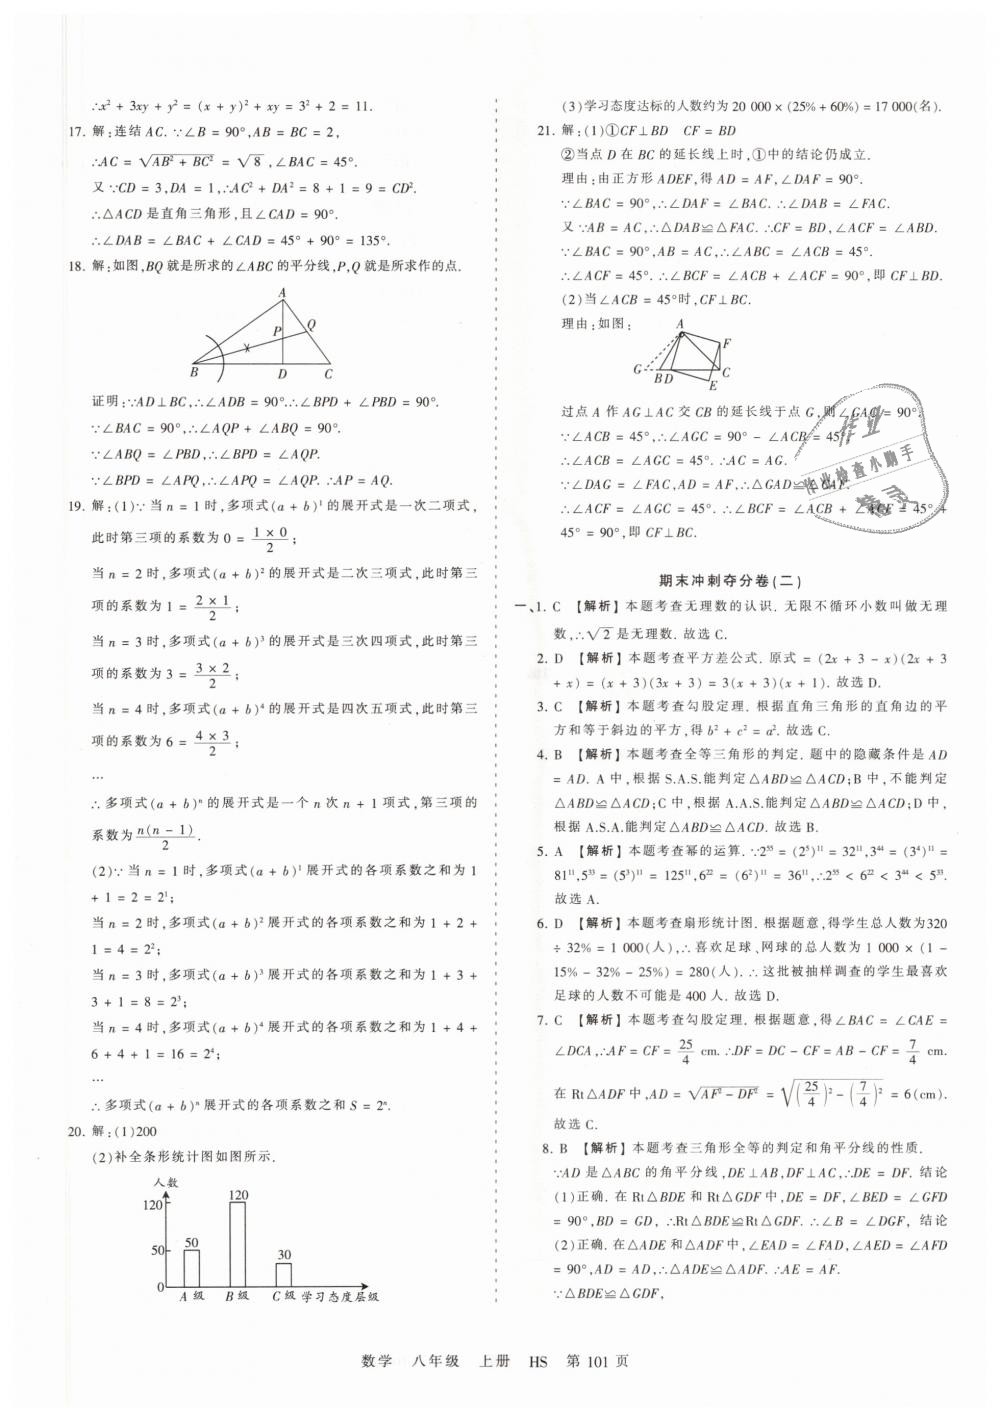 ∴x² + 3xy + y² = (x + y)² + xy = 3² + 2 = 11.
17. 解:连结 AC. ∵∠B = 90°,AB = BC = 2,
∴AC = √(AB² + BC²) = √8 ,∠BAC = 45°.
又∵CD = 3,DA = 1,∴AC² + DA² = 8 + 1 = 9 = CD².
∴△ACD 是直角三角形,且∠CAD = 90°.
∴∠DAB = ∠BAC + ∠CAD = 45° + 90° = 135°.
18. 解:如图,BQ 就是所求的∠ABC 的平分线,P,Q 就是所求作的点.
A
P
Q
B
D
C
证明:∵AD⊥BC,∴∠ADB = 90°.∴∠BPD + ∠PBD = 90°.
∵∠BAC = 90°,∴∠AQP + ∠ABQ = 90°.
∵∠ABQ = ∠PBD,∴∠BPD = ∠AQP.
∵∠BPD = ∠APQ,∴∠APQ = ∠AQP. ∴AP = AQ.
19. 解:(1)∵ 当 n = 1 时,多项式(a + b)¹ 的展开式是一次二项式,
此时第三项的系数为 0 = (1 × 0)/2 ;
当 n = 2 时,多项式(a + b)² 的展开式是二次三项式,此时第三
项的系数为 1 = (2 × 1)/2 ;
当 n = 3 时,多项式(a + b)³ 的展开式是三次四项式,此时第三
项的系数为 3 = (3 × 2)/2 ;
当 n = 4 时,多项式(a + b)⁴ 的展开式是四次五项式,此时第三
项的系数为 6 = (4 × 3)/2 ;
…
∴ 多项式(a + b)ⁿ 的展开式是一个 n 次 n + 1 项式,第三项的
系数为 n(n − 1)/2 .
(2)∵ 当 n = 1 时,多项式(a + b)¹ 展开式的各项系数之和为 1
+ 1 = 2 = 2¹;
当 n = 2 时,多项式(a + b)² 展开式的各项系数之和为 1 + 2 +
1 = 4 = 2²;
当 n = 3 时,多项式(a + b)³ 展开式的各项系数之和为 1 + 3 +
3 + 1 = 8 = 2³;
当 n = 4 时,多项式(a + b)⁴ 展开式的各项系数之和为 1 + 4 +
6 + 4 + 1 = 16 = 2⁴;
…
∴ 多项式(a + b)ⁿ 展开式的各项系数之和 S = 2ⁿ.
20. 解:(1)200
(2)补全条形统计图如图所示.
人数
120
120
50
50
30
0
A 级 B 级 C 级 学习态度层级
(3)学习态度达标的人数约为 20 000 × (25% + 60%) = 17 000(名).
21. 解:(1)①CF⊥BD CF = BD
②当点 D 在 BC 的延长线上时,①中的结论仍成立.
理由:由正方形 ADEF,得 AD = AF,∠DAF = 90°.
∵∠BAC = 90°,∴∠DAF = ∠BAC. ∴∠DAB = ∠FAC.
又∵AB = AC,∴△DAB≌△FAC. ∴CF = BD,∠ACF = ∠ABD.
∵∠BAC = 90°,AB = AC,∴∠ABC = ∠ACB = 45°.
∴∠ACF = 45°. ∴∠BCF = ∠ACB + ∠ACF = 90°,即 CF⊥BD.
(2)当∠ACB = 45°时,CF⊥BC.
理由:如图:
A
F
G
B D
E
C
过点 A 作 AG⊥AC 交 CB 的延长线于点 G,则∠GAC = 90°.
∵∠ACB = 45°,∴∠AGC = 90° − ∠ACB = 45°.
∴∠ACB = ∠AGC = 45°. ∴AC = AG.
∵∠DAG = ∠FAC,AD = AF,∴△GAD≌△CAF.
∴∠ACF = ∠AGC = 45°. ∴∠BCF = ∠ACB + ∠ACF = 45° +
45° = 90°,即 CF⊥BC.
作业
作业检查小助手
期末冲刺夺分卷(二)
一、1. C 【解析】本题考查无理数的认识. 无限不循环小数叫做无理
数,∴√2 是无理数. 故选 C.
2. D 【解析】本题考查平方差公式. 原式 = (2x + 3 − x)(2x + 3
+ x) = (x + 3)(3x + 3) = 3(x + 3)(x + 1). 故选 D.
3. C 【解析】本题考查勾股定理. 根据直角三角形的直角边的平
方和等于斜边的平方,得 b² + c² = a². 故选 C.
4. B 【解析】本题考查全等三角形的判定. 题中的隐藏条件是 AD
= AD. A 中,根据 S.A.S.能判定△ABD≌△ACD;B 中,不能判定
△ABD≌△ACD;C 中,根据 A.A.S.能判定△ABD≌△ACD;D 中,
根据 A.S.A.能判定△ABD≌△ACD. 故选 B.
5. A 【解析】本题考查幂的运算. ∵2⁵⁵ = (2⁵)¹¹ = 32¹¹,3⁴⁴ = (3⁴)¹¹ =
81¹¹,5³³ = (5³)¹¹ = 125¹¹,6²² = (6²)¹¹ = 36¹¹,∴2⁵⁵ < 6²² < 3⁴⁴ < 5³³.
故选 A.
6. D 【解析】本题考查扇形统计图. 根据题意,得学生总人数为320
÷ 32% = 1 000(人),∴ 喜欢足球、网球的总人数为 1 000 × (1 −
15% − 32% − 25%) = 280(人). ∴ 这批被抽样调查的学生最喜欢
足球的人数不可能是 400 人. 故选 D.
7. C 【解析】本题考查勾股定理. 根据题意,得∠BAC = ∠CAE =
∠DCA,∴AF = CF = 25/4 cm. ∴DF = DC − CF = AB − CF = 7/4 cm.
在 Rt△ADF 中,AD = √(AF² − DF²) = √((25/4)² − (7/4)²) = 6(cm).
故选 C.
8. B 【解析】本题考查三角形全等的判定和角平分线的性质.
∵AD 是△ABC 的角平分线,DE⊥AB,DF⊥AC,∴DE = DF. 结论
(1)正确. 在 Rt△BDE 和 Rt△GDF 中,DE = DF,∠BED = ∠GFD
= 90°,BD = GD, ∴Rt△BDE≌Rt△GDF. ∴∠B = ∠DGF, 结论
(2)正确. 在△ADE 和△ADF 中,∠EAD = ∠FAD,∠AED = ∠AFD
= 90°,AD = AD,∴△ADE≌△ADF. ∴AE = AF.
∵△BDE≌△GDF,
数学 八年级 上册 HS 第 101 页